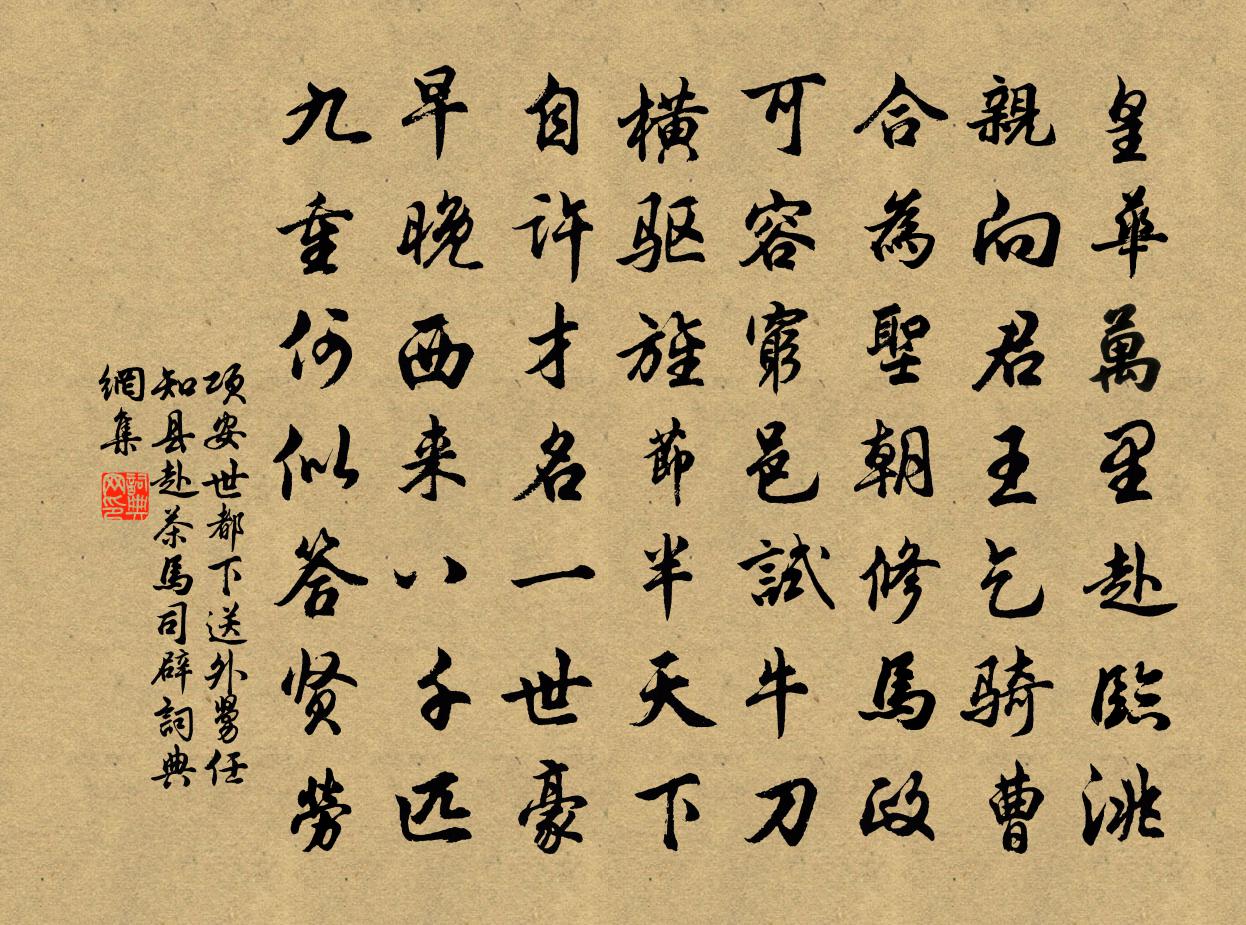 皇華萬里赴臨洮
親向君王乞騎曹
合為聖朝修馬政
可容窮邑試牛刀
橫驱旌節半天下
自许才名一世豪
早晚西来八千匹
九重何似答贤勞
项安世都下送外舅任
知县赴茶馬司辟詞典
網集
詞典網印